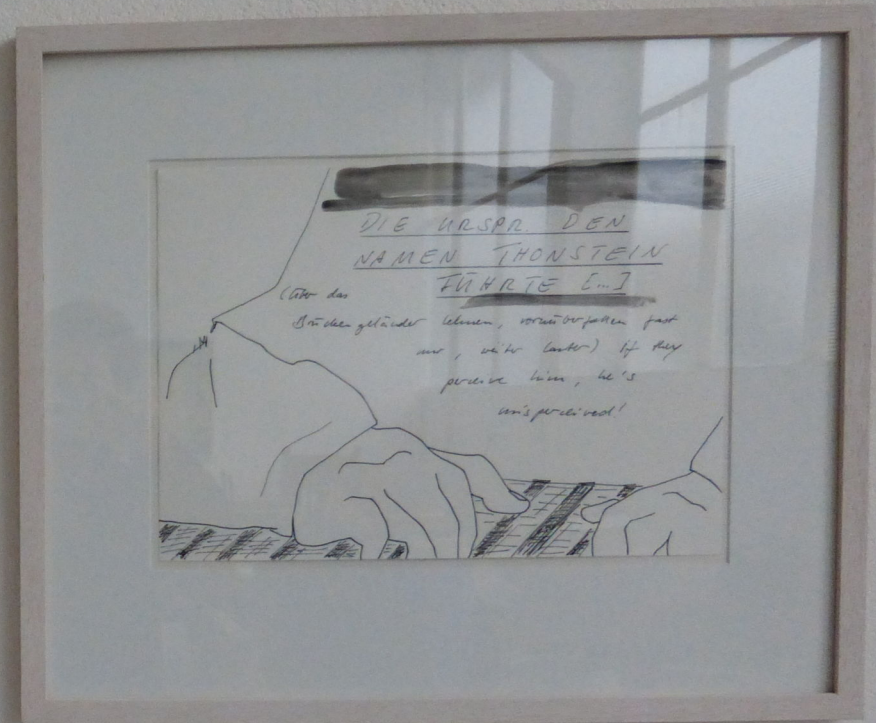 DIE URSPR. DEN
NAMEN THONSTEIN
FÜHRTE [...]
(Über das
Brückengeländer lehnen, vornüberfallen fast
nur, weiter lauter) If they
perceive him, he's
misperceived!